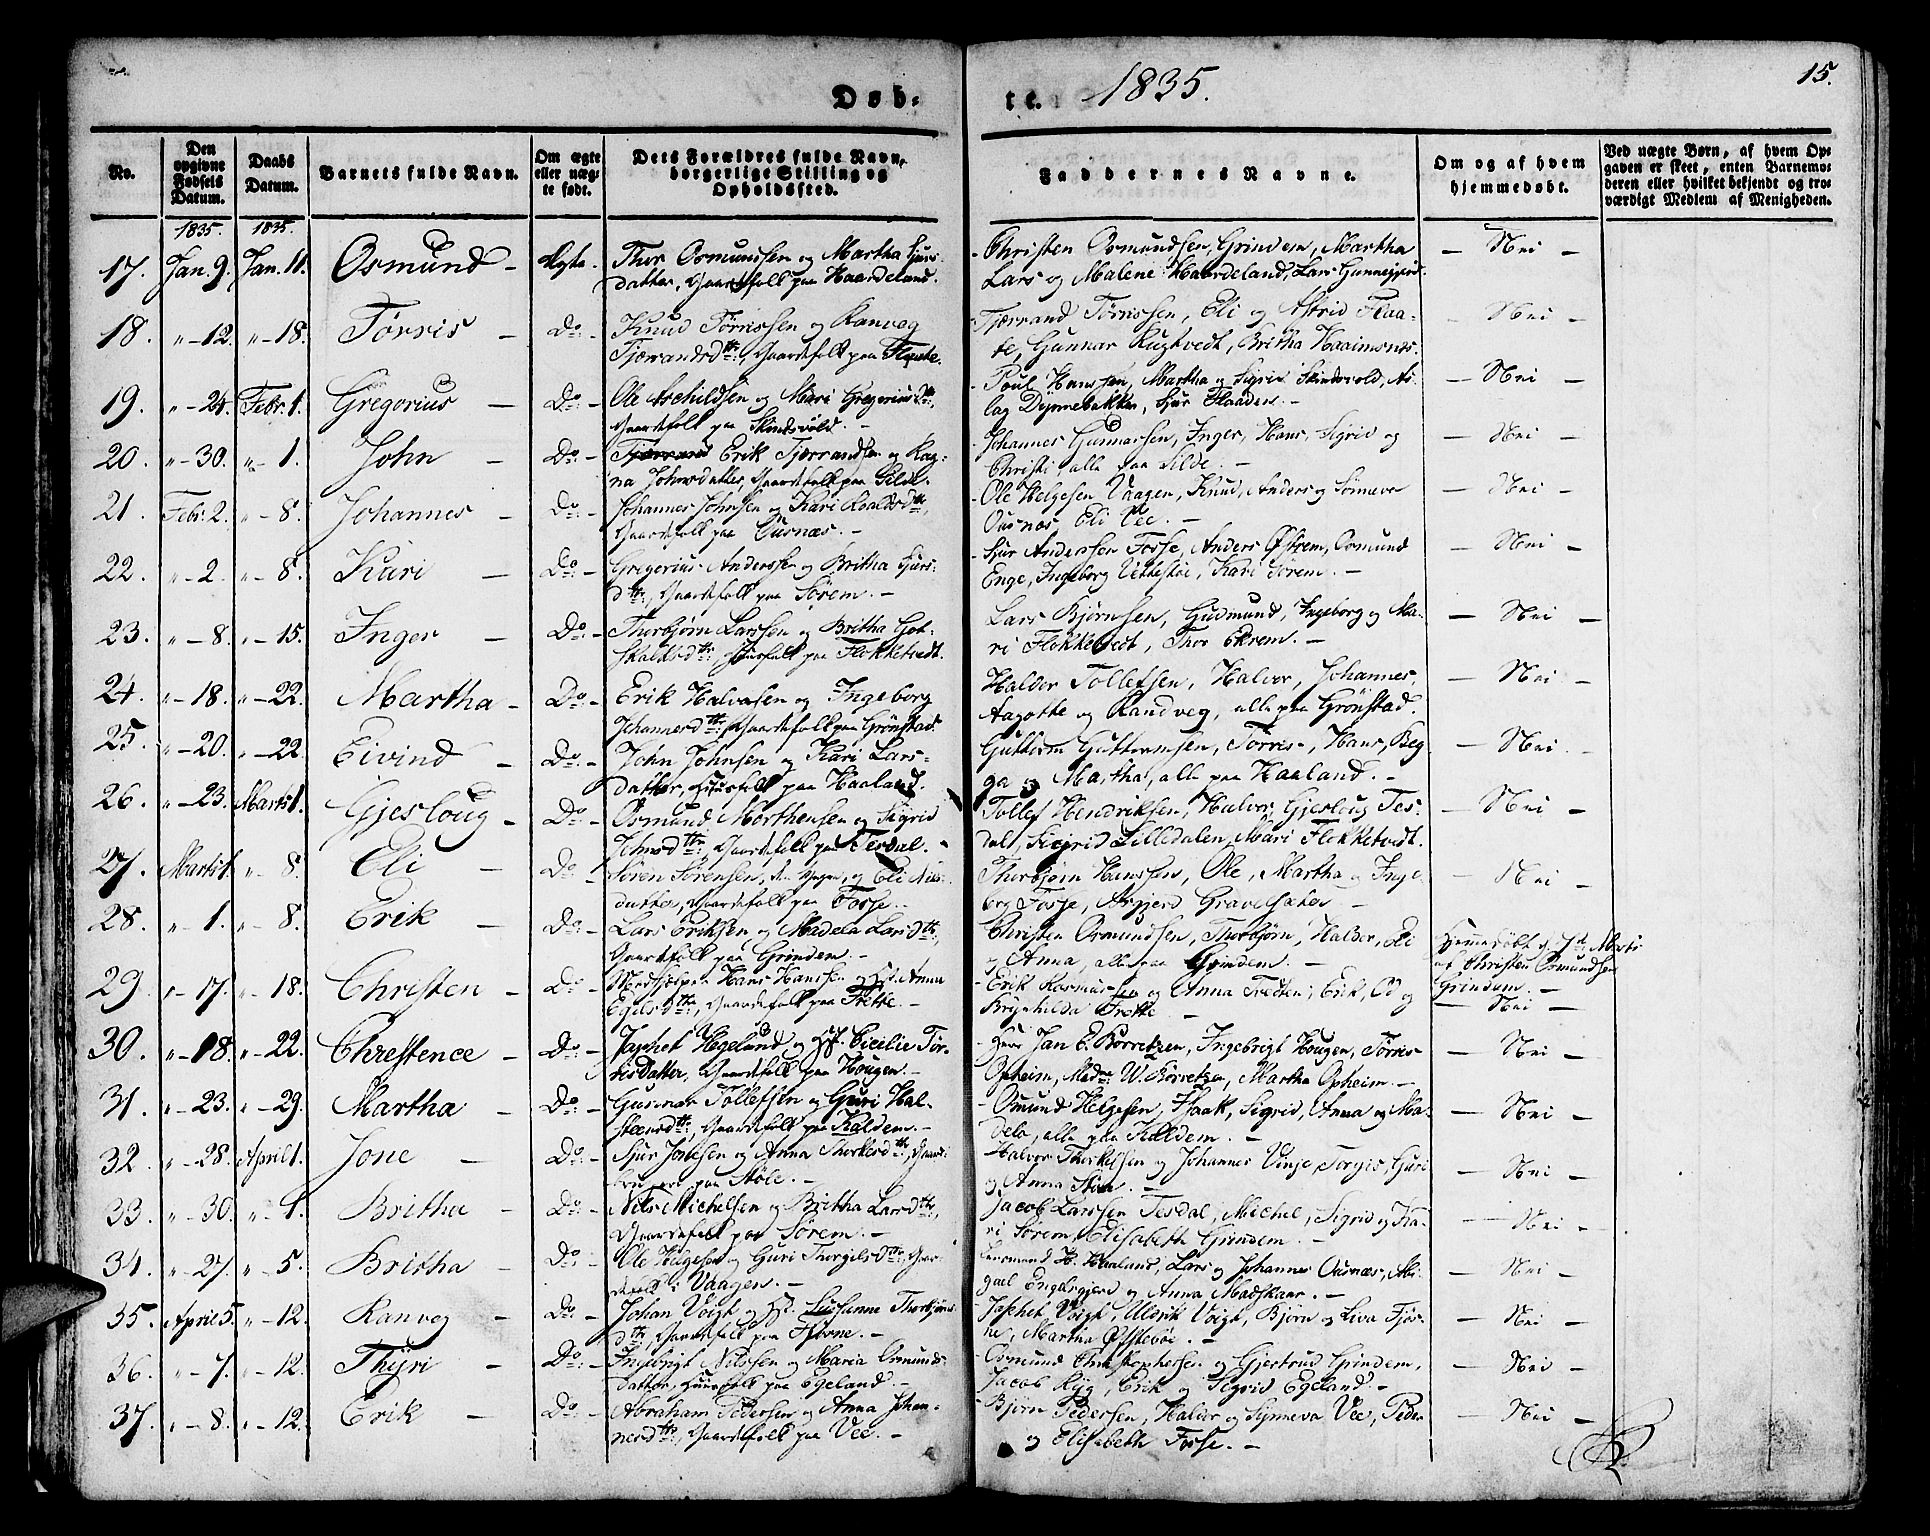 Døb-
te. 1835.
15.
No.
Den opgivne Fødsels Datum.
Daabs Datum.
Barnets fulde Navn.
Om ægte eller uægte født.
Dets Forældres fulde Navn, borgerlige Stilling og Opholdssted.
Faddernes Navne.
Om og af hvem hjemmedøbt.
Ved uægte Børn, af hvem Opgaven er skeet, enten Barnemoderen eller hvilket bekjendt og troværdigt Medlem af Menigheden.
1835. 1835.
17. Jan. 9. Jan. 11. Osmund - Ægte. Thor Osmundsen og Martha Sjurs
datter, Gaardfolk paa Haardeland.
- Christen Osmundsen, Grindem, Martha
Lars og Malene Haardeland, Lars
- Nei -
18. " - 12. " - 18. Tørris - Do - Knud Tørrissen og Ranveg
Tjærandsdtr:, Gaardfolk paa Flaate.
- Tjærrand Tørrissen, Eli og Astrid Flaa-
te, Gunnar Rugtvedt, Britha
- Nei -
19. " - 24. Febr. 1. Gregorius - Do - Ole Aschildsen og Mari Gregoriusdtr,
Gaardfolk paa Skindsvold. -
- Poul Hanssen, Martha og Sigrid Skindsvold, As-
lag Dynnebakke, Sjur Flaaden. -
- Nei -
20. " - 30. " - 1. John - Do - Tjærrand Erik Tjærandsen og Rag-
na Johnsdatter, Gaardfolk paa Silde.
- Johannes Gunnarsen, Inger, Hans, Sigrid og
Christi, alle paa Silde. -
- Nei -
21. Febr. 2. " - 8. Johannes - Do - Johannes Johnsen og Kari Roaldsdtr,
Gaardfolk paa Ousnæs. -
- Ole Helgesen Vaagen, Knud, Anders og Sønneve
Ousnæs, Eli Vee. -
- Nei -
22. " - 2. " - 8. Kari - Do - Gregorius Anderssen og Britha Sjurs-
dtr:, Gaardfolk paa Sørem. -
- Sjur Anderssen Fosse, Anders Østrem, Osmund
Enge, Ingeborg Vettestøe, Kari Sørem. -
- Nei -
23. " - 8. " - 15. Inger - Do - Thorbjørn Larssen og Britha Got-
skalksdtr: Huusfolk paa Flokketvedt.
Lars Bjørnsen, Gudmund, Ingeborg og Ma-
ri Flokketvedt, Thor Ekrem. -
- Nei -
24. " - 18. " - 22. Martha - Do - Erik Halvorsen og Ingeborg
Johannesdtr: Gaardfolk paa Grønstad.
Haldor Tollefsen, Halvor, Johannes,
Aagothe og Randveg, alle paa Grønstad.
- Nei -
25. " - 20. " - 22 Eivind - Do - John Johnsen og Kari Lars-
datter, Huusfolk paa Haaland.
Guttorm Guttormsen, Tørris, Hans, Beg
ga og Martha, alle paa Haaland. -
- Nei -
26. " - 23. Marts 1. Gjesloug - Do - Osmund Morthensen og Sigrid
Johnsdtr:, Gaardfolk paa Tesdal. -
Tollef Hendriksen, Halvor, Gjesloug Tes-
dal, Sigrid Lilledalen, Mari Flokketvedt.
- Nei -
27. Marts 1. " - 8. Eli - Do - Søren Sørensen, den yngre, og Eli Nils-
datter, Gaardfolk paa Fosse. -
Thorbjørn Hanssen, Ole, Martha og Inge-
borg Fosse, Asgjerd Gravelsæter -
- Nei -
28. " - 1. " - 8. Erik - Do - Lars Eriksen og Madela Larsdtr,
Gaardfolk paa Grindem. -
Christen Osmundsen, Thorbjørn, Haldor, Eli
og Anna, alle paa Grindem. -
Hjemmedøbt d. 1ste Marts
af Christen Osmundsen
Grindem. -
29. " - 17. " - 18. Christen - Do - Medhjelper Hans Hanssen og H: Anna
Egilsdtr:, Gaardfolk paa Trette. -
- Erik Rasmussen og Anna Tredten, Erik, Od og
Brynhilda Trette -
- Nei -
30. " - 18. " - 22. Chrestence - Do - Japhet Hegelund og H: Cicilie Tør-
risdatter, Gaardfolk paa Hougen. -
- Herr Jan E. Borretzen, Ingebrigt Hougen, Tørris
Opheim, Mad: W. Borretzen, Martha Opheim. -
- Nei -
31. " - 23. " - 29. Martha - Do - Gunnar Tollefsen og Guri Hal-
steensdtr:, Gaardfolk paa Kaldem. -
- Osmund Helgesen, Isaak, Sigrid, Anna og Ma-
dela, alle paa Kaldem. -
- Nei -
32. " - 28. April 1. Jone - Do - Sjur Jonesen og Anna Thorkelsdtr:, Gaard-
brugere paa Støle. -
Halvor Thorkelsen og Johannes Vinje, Torgis, Guri
og Anna Støle. -
- Nei -
33. " - 30. " - 1. Britha - Do - Nils Michelsen og Britha Larsdtr,
Gaardfolk paa Sørem. -
Jacob Larssen Tesdal, Michel, Sigrid og Ka-
ri Sørem, Elisabeth Grindem. -
- Nei -
34. " - 27. " - 5. Britha - Do - Ole Helgesen og Guri Thorgilsdtr:, Gaar-
defolk i Vaagen. -
H. Haaland, Lars og Johannes Ousnæs, Abi-
gael Engebrgjerd og Anna Madskaar. -
- Nei -
35. April 5. " - 12. Ranveg - Do - Johan Voigt og H: Susanne Thorbjørns
dtr:, Gaardfolk paa Fjøsne. -
- Japhet Voigt, Uldrik Voigt, Bjørn og Liva Fjøs-
ne, Martha Østevøe. -
- Nei -
36. " - 7. " - 12. Thyri - Do - Ingebrigt Nilssen og Maria Osmunds-
datter, Huusfolk paa Egeland. -
- Osmund Christophersen og Gjertrud Grindem,
Jacob Ryg, Erik og Sigrid Egeland. -
- Nei -
37. " - 8. " - 12. Erik - Do - Abraham Pedersen og Anna Johan-
nesdtr:, Gaardfolk paa Vee. -
- Bjørn Pedersen, Haldor og Synneva Vee, Peder
og Elisabeth Fosse. -
- Nei -